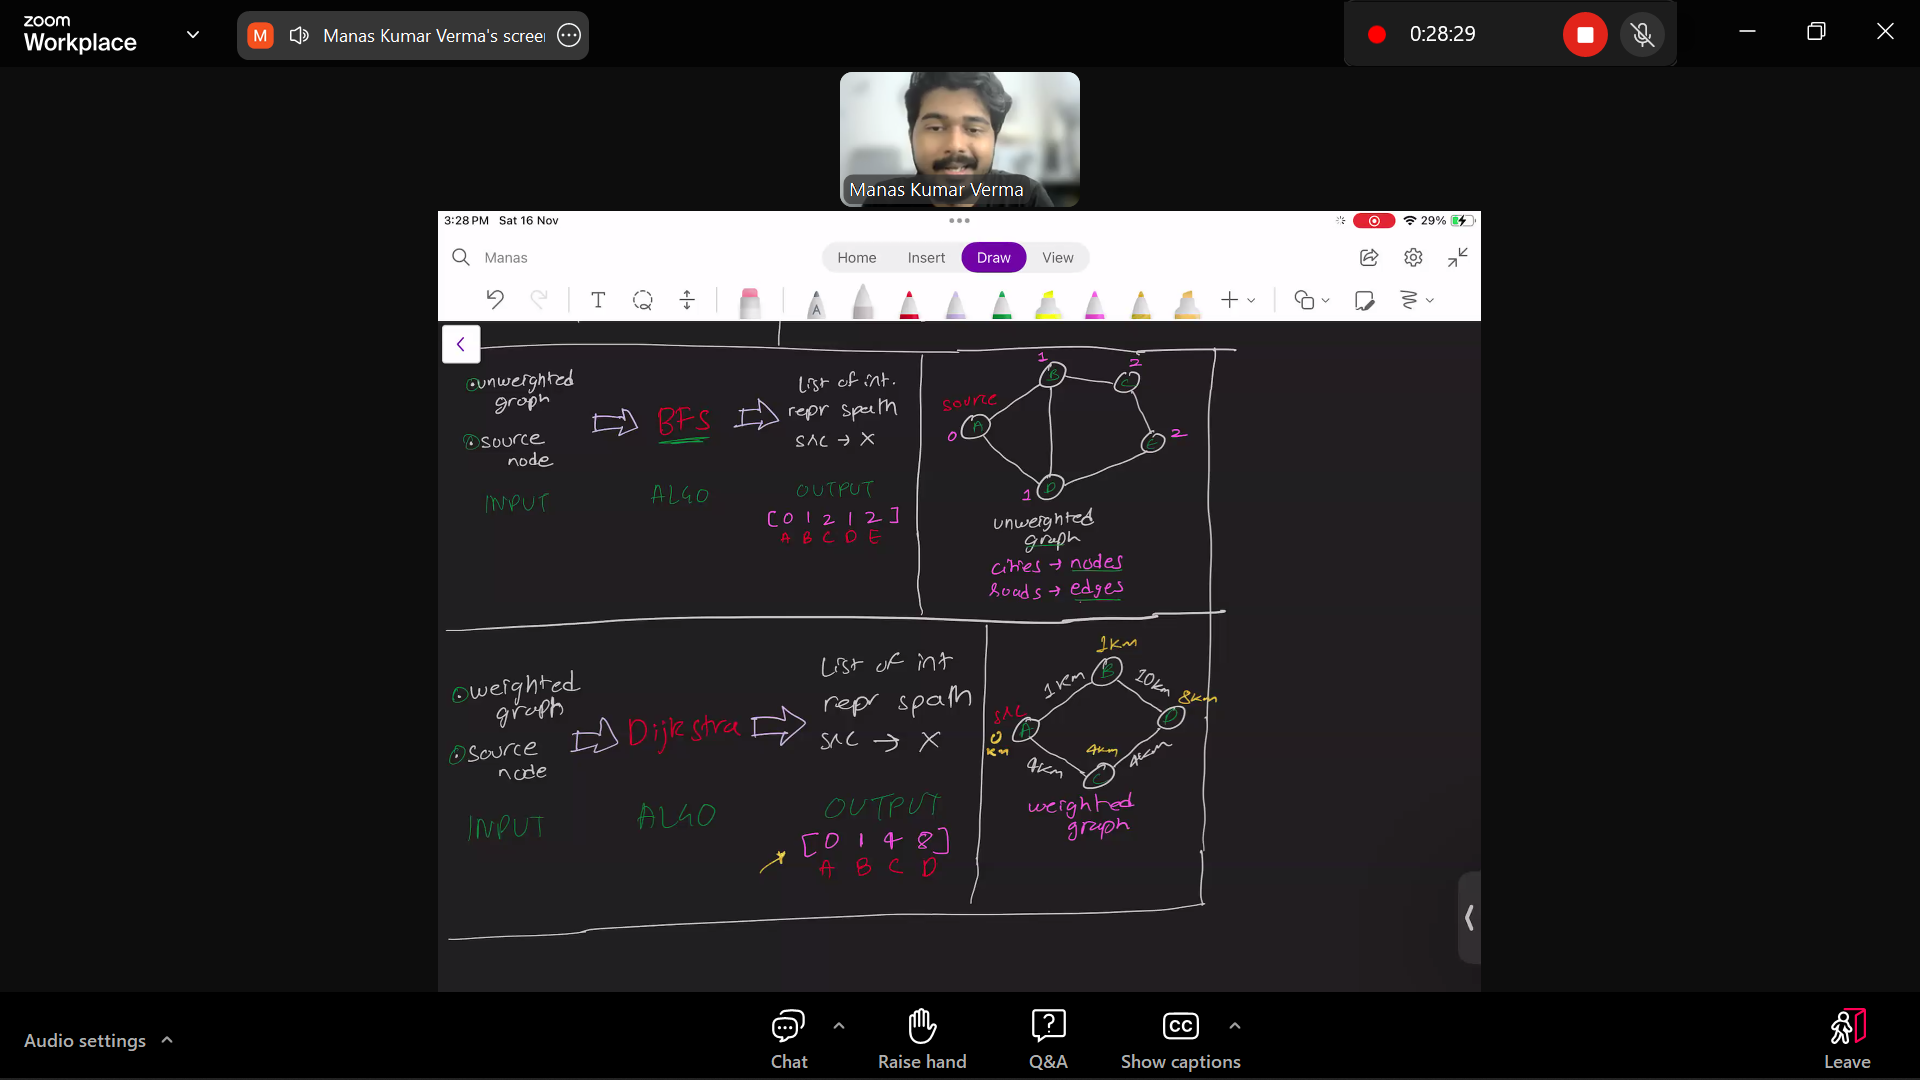 zoom
Workplace
Manas Kumar Verma's screen
0:28:29
Manas Kumar Verma
3:28 PM Sat 16 Nov
29%
Manas
Home
Insert
Draw
View
unweighted
graph
source
node
INPUT
BFS
ALGO
List of int.
repr spath
src → X
OUTPUT
[ 0 1 2 1 2 ]
A B C D E
source
0
A
1
B
2
C
1
D
2
E
unweighted
graph
cities → nodes
roads → edges
weighted
graph
source
node
INPUT
Dijkstra
ALGO
List of int
repr spath
src → X
OUTPUT
[ 0 1 4 8 ]
A B C D
1km
B
1km
10km
8km
D
src
A
0
km
4km
C
4km
4km
weighted
graph
Audio settings
Chat
Raise hand
Q&A
CC
Show captions
Leave